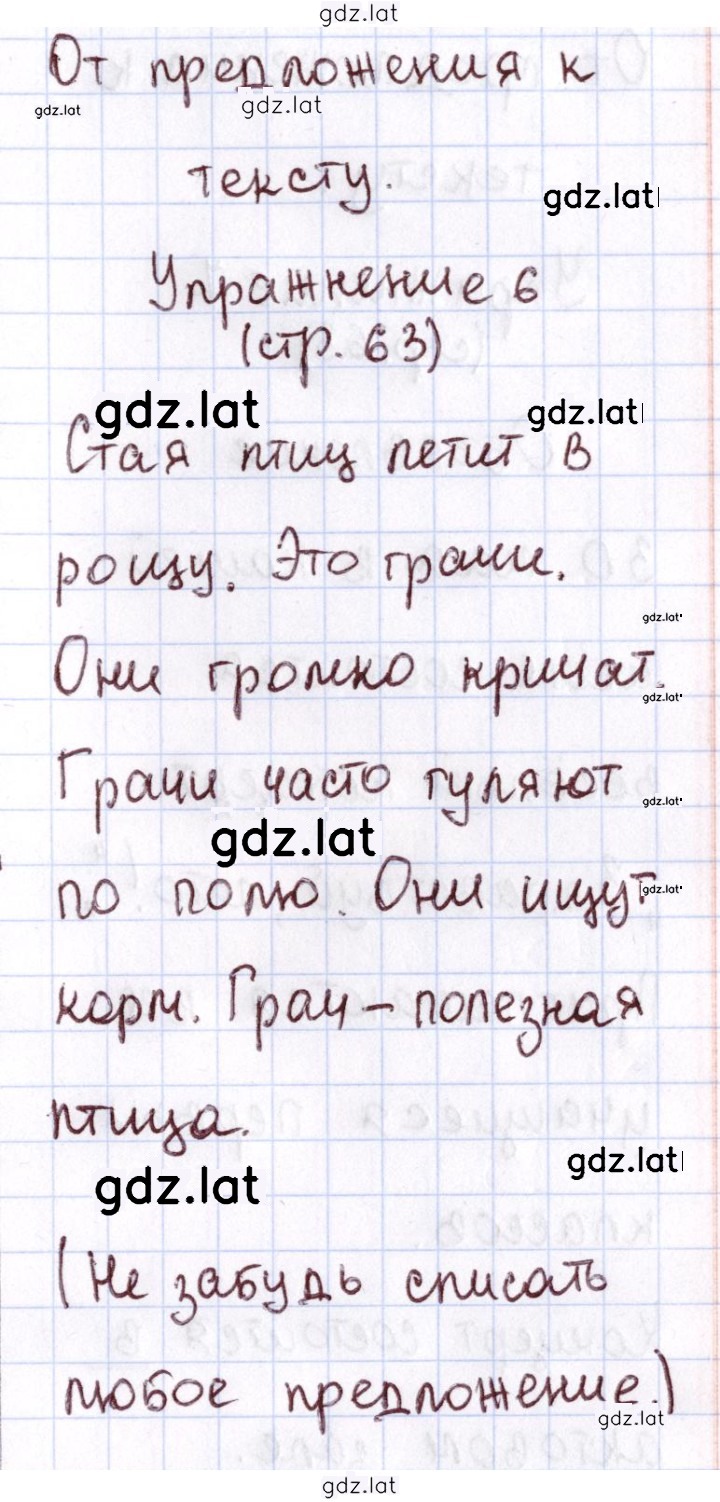 gdz.lat
От предложения к
gdz.lat gdz.lat
тексту.
gdz.lat
Упражнение 6
(стр. 63)
gdz.lat gdz.lat
Стая птиц летит в
рощу. Это грачи.
gdz.lat
Они громко кричат.
gdz.lat
Грачи часто гуляют
gdz.lat
gdz.lat
по полю. Они ищут
gdz.lat
корм. Грач – полезная
птица.
gdz.lat
gdz.lat
(Не забудь списать
любое предложение.)
gdz.lat
gdz.lat